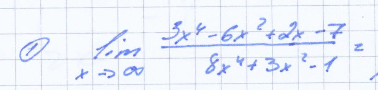 ① lim x→∞ (3x⁴-6x²+2x-7)/(8x⁴+3x²-1) =